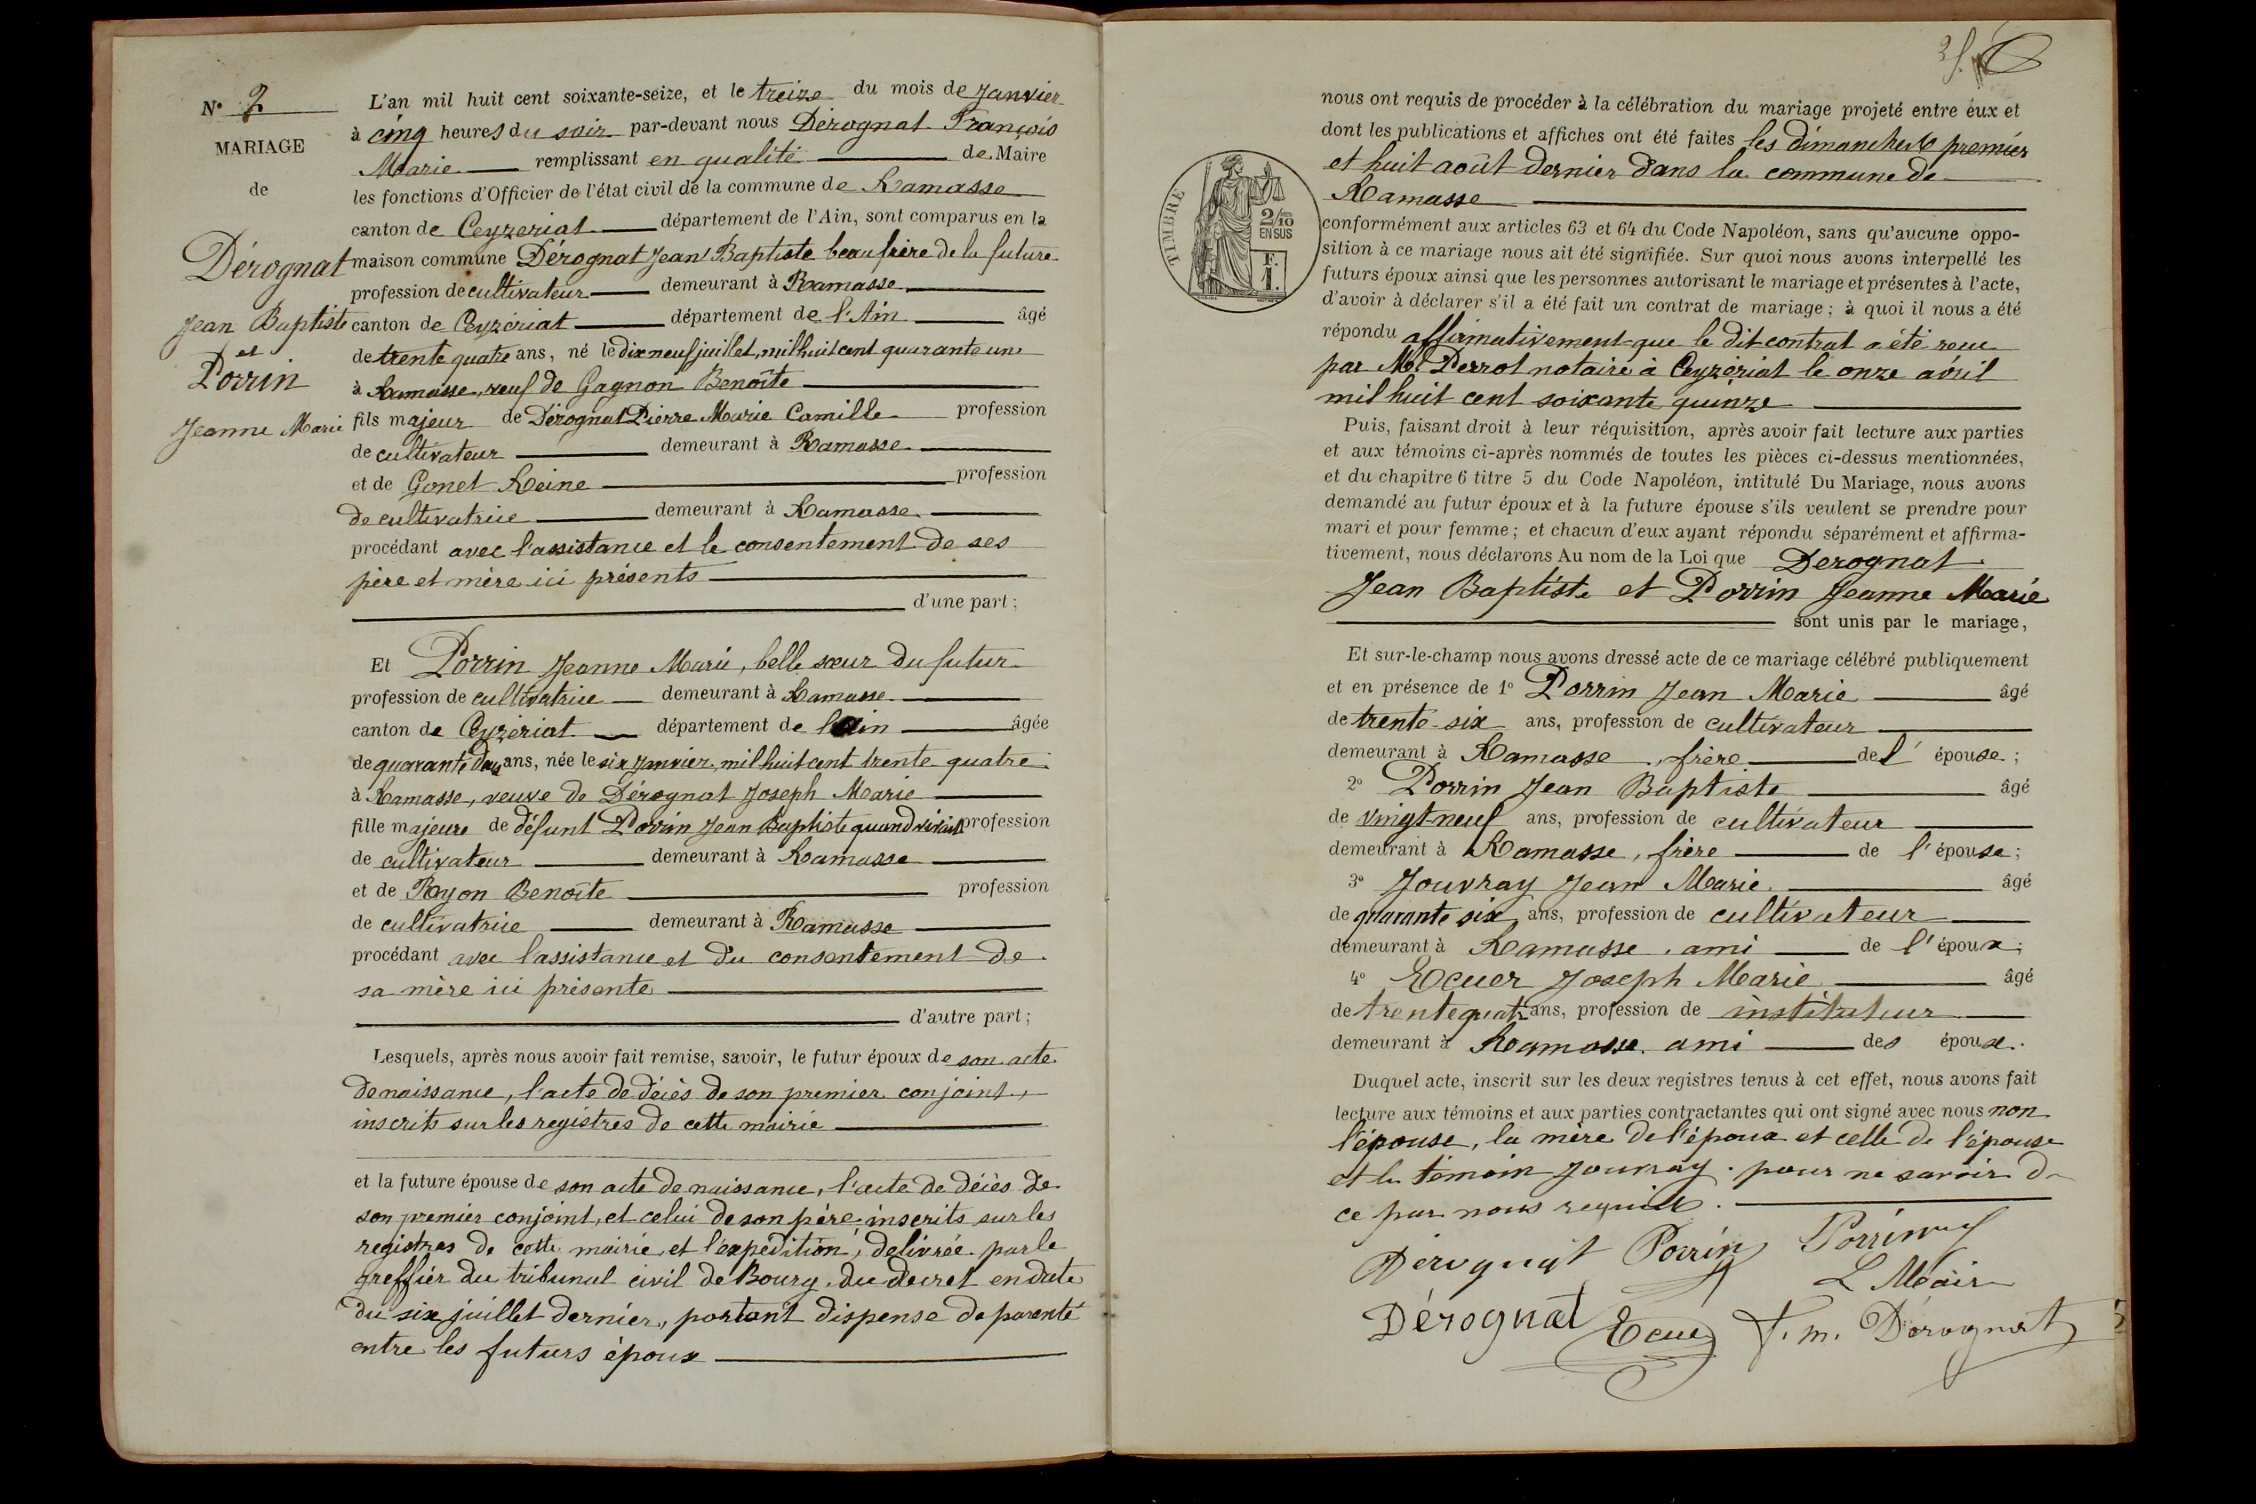 N° 2
MARIAGE
de
Dérognat
Jean Baptiste
et
Porrin
Jeanne Marie
L'an mil huit cent soixante-seize, et le treize du mois de Janvier
à cinq heures du soir par-devant nous Dérognat François
Marie remplissant en qualité de Maire
les fonctions d'Officier de l'état civil de la commune de Ramasse
canton de Ceyzeriat département de l'Ain, sont comparus en la
maison commune Dérognat Jean Baptiste beau frère de la future
profession de cultivateur demeurant à Ramasse
canton de Ceyzériat département de l'Ain âgé
de trente quatre ans, né le dix neuf juillet, mil huit cent quarante un
à Ramasse, veuf de Gagnon Benoîte
fils majeur de Dérognat Pierre Marie Camille profession
de cultivateur demeurant à Ramasse
et de Gonet Reine profession
de cultivatrice demeurant à Ramasse
procédant avec l'assistance et le consentement de ses
père et mère ici présents
d'une part;
Et Porrin Jeanne Marie, belle sœur du futur
profession de cultivatrice demeurant à Ramasse
canton de Ceyzériat département de l'ain âgée
de quarante deux ans, née le six janvier, mil huit cent trente quatre
à Ramasse, veuve de Dérognat Joseph Marie
fille majeure de défunt Porrin Jean Baptiste quand vivait profession
de cultivateur demeurant à Ramasse
et de Rayon Benoîte profession
de cultivatrice demeurant à Ramasse
procédant avec l'assistance et du consentement de
sa mère ici présente
d'autre part;
Lesquels, après nous avoir fait remise, savoir, le futur époux de son acte
de naissance, l'acte de décès de son premier conjoint,
inscrits sur les registres de cette mairie
et la future épouse de son acte de naissance, l'acte de décès de
son premier conjoint, et celui de son père inscrits sur les
registres de cette mairie, et l'expédition, delivrée par le
greffier du tribunal civil de Bourg, du decret en date
du six juillet dernier, portant dispense de parenté
entre les futurs époux
nous ont requis de procéder à la célébration du mariage projeté entre eux et
dont les publications et affiches ont été faites les dimanches premier
et huit août dernier dans la commune de
Ramasse
TIMBRE
2/10
EN SUS
F.
1.
conformément aux articles 63 et 64 du Code Napoléon, sans qu'aucune oppo-
sition à ce mariage nous ait été signifiée. Sur quoi nous avons interpellé les
futurs époux ainsi que les personnes autorisant le mariage et présentes à l'acte,
d'avoir à déclarer s'il a été fait un contrat de mariage; à quoi il nous a été
répondu affirmativement que le dit contrat a été reçu
par Me Perrot notaire à Ceyzériat le onze avril
mil huit cent soixante quinze
Puis, faisant droit à leur réquisition, après avoir fait lecture aux parties
et aux témoins ci-après nommés de toutes les pièces ci-dessus mentionnées,
et du chapitre 6 titre 5 du Code Napoléon, intitulé Du Mariage, nous avons
demandé au futur époux et à la future épouse s'ils veulent se prendre pour
mari et pour femme; et chacun d'eux ayant répondu séparément et affirma-
tivement, nous déclarons Au nom de la Loi que Derognat
Jean Baptiste et Porrin Jeanne Marie
sont unis par le mariage,
Et sur-le-champ nous avons dressé acte de ce mariage célébré publiquement
et en présence de 1° Porrin Jean Marie âgé
de trente-six ans, profession de cultivateur
demeurant à Ramasse, frère de l' épouse;
2° Porrin Jean Baptiste âgé
de vingt neuf ans, profession de cultivateur
demeurant à Ramasse, frère de l'épouse;
3° Jouvray Jean Marie âgé
de quarante six ans, profession de cultivateur
demeurant à Ramasse, ami de l'époux;
4° Ecuer Joseph Marie âgé
de trente quatre ans, profession de instituteur
demeurant à Ramasse. ami des époux.
Duquel acte, inscrit sur les deux registres tenus à cet effet, nous avons fait
lecture aux témoins et aux parties contractantes qui ont signé avec nous non
l'épouse, la mère de l'époux et celle de l'épouse
et le témoin Jouvray, pour ne savoir de
ce par nous requis.
Dérognat Porrin Porrin
L Mair
Dérognat Ecuer f. m. Dérognat